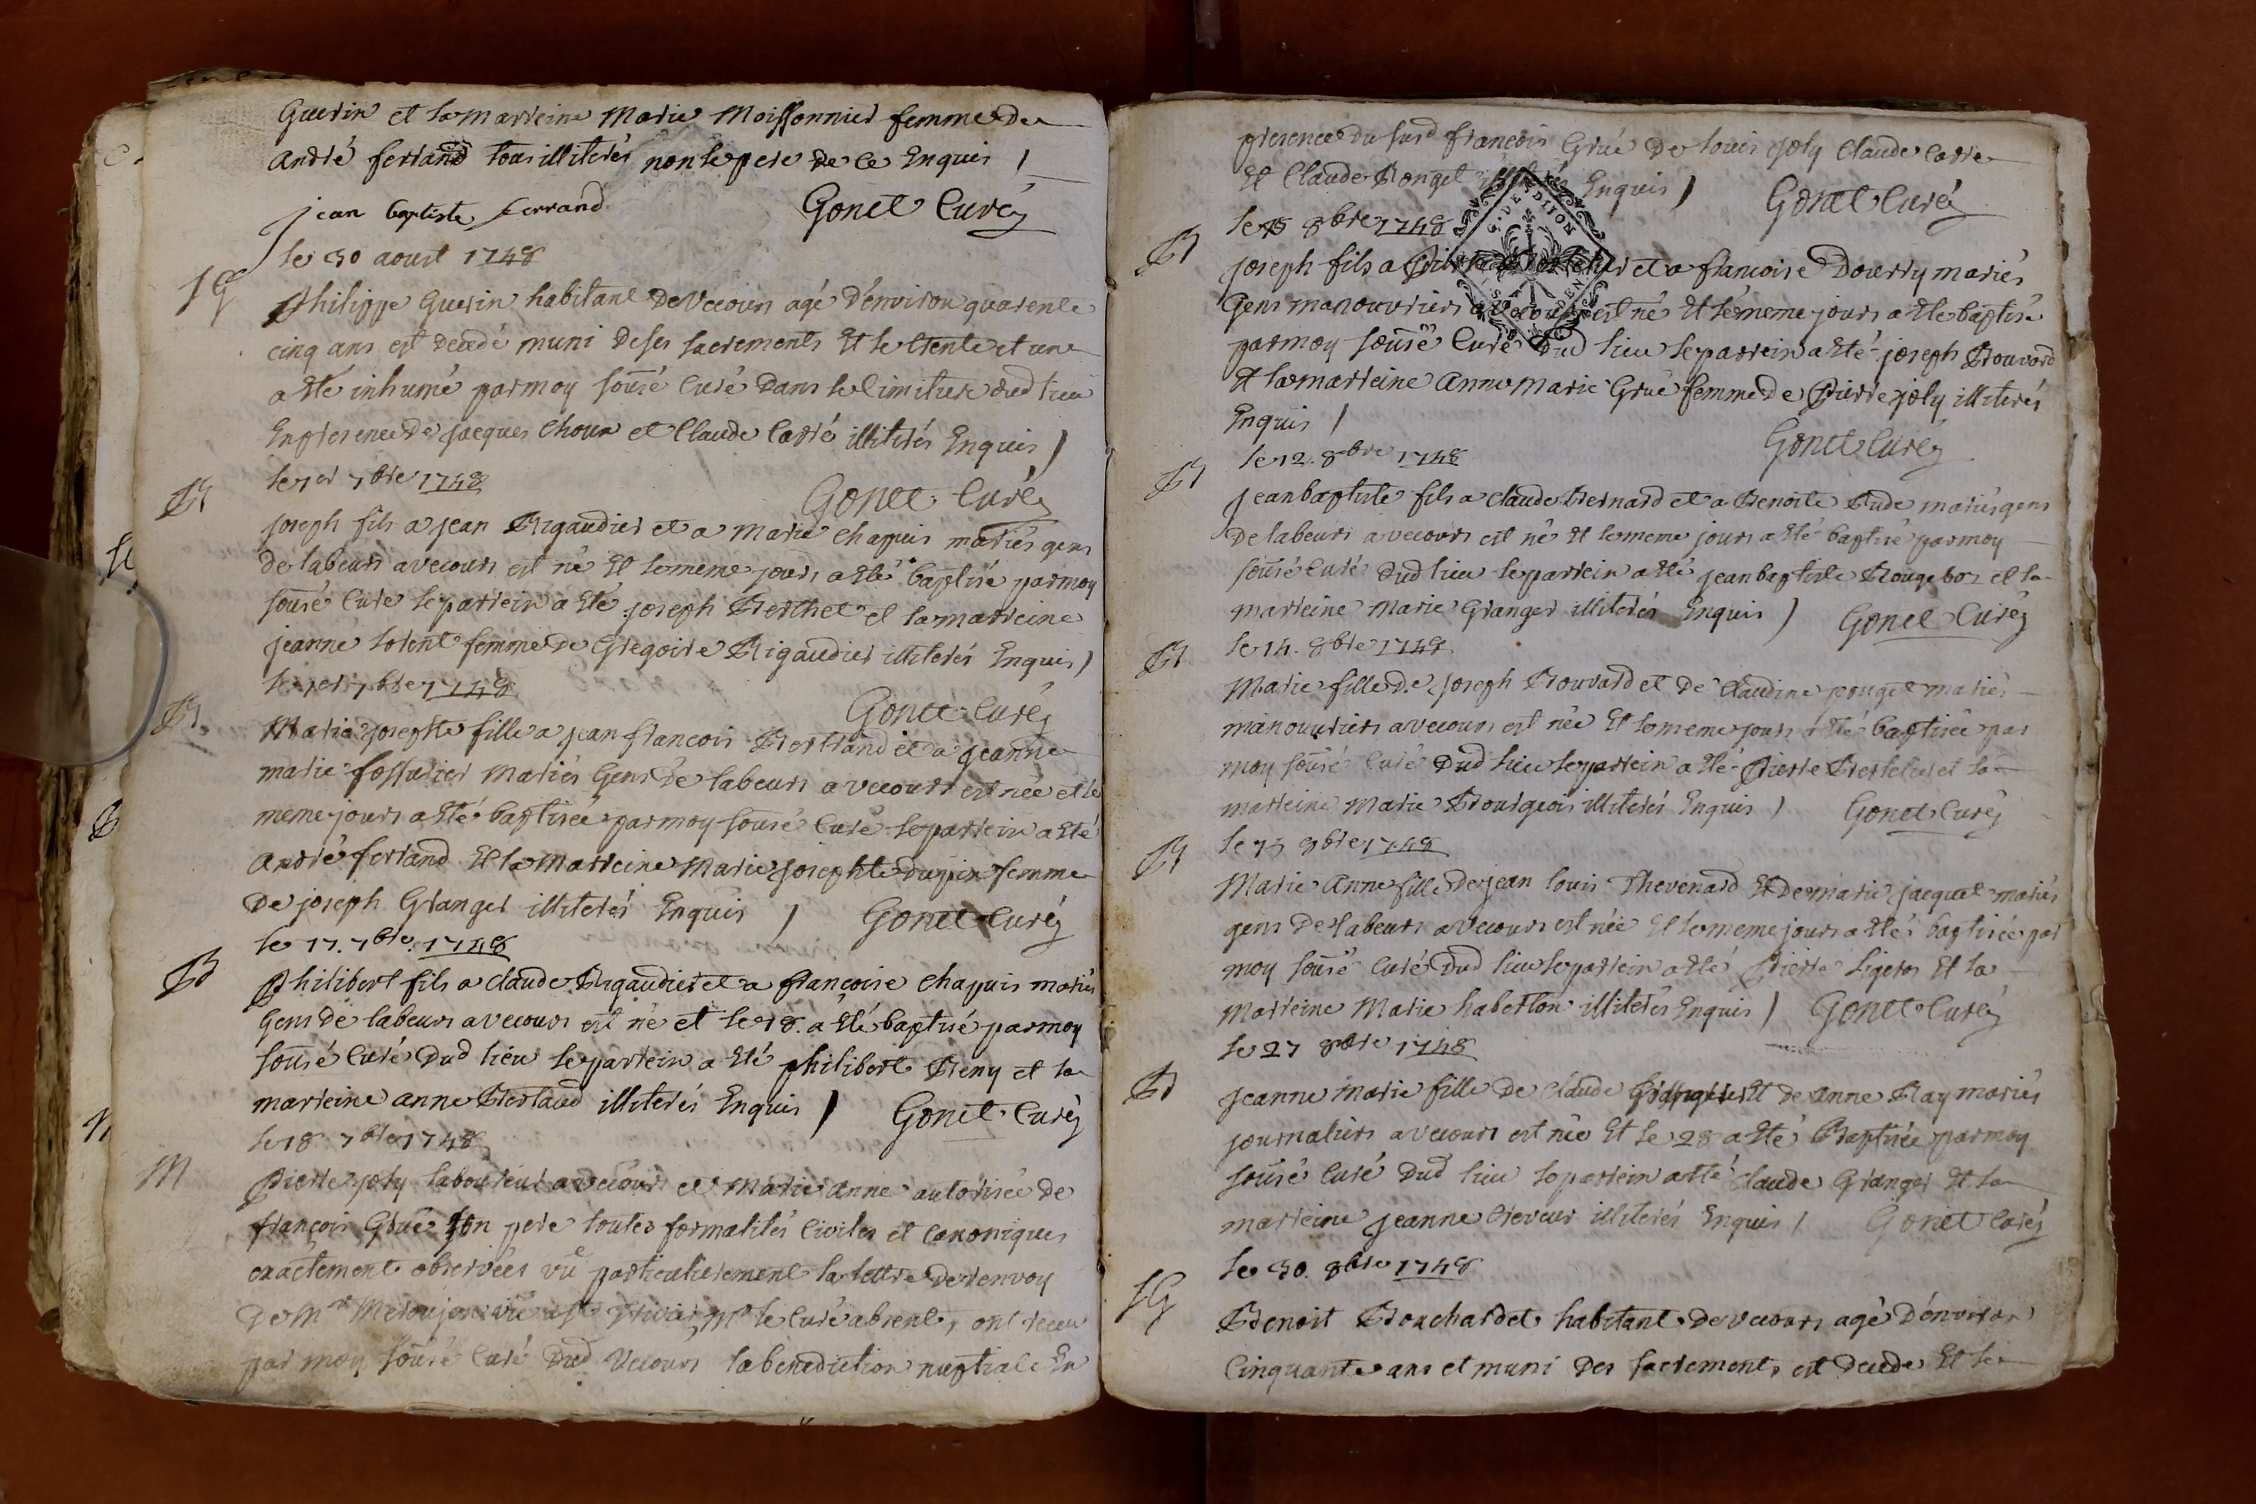 Guerin et la marreine Marie Moissonnier femme de
André ferrand tous illiterés non le pere de ce Enquis /
jean baptiste ferrand Gonet Curé
le 30 aoust 1748
SG
Philippe Guerin habitant de Vecours agé d'environ quarente
cinq ans est decedé muni de ses sacrements Et le trente et un
a Eté inhumé par moy sousé Curé dans le Cimitiere dud lieu
En presence de jacques Choux et Claude Carré illiterés Enquis /
le 1er 7bre 1748 Gonet Curé
B
joseph fils a jean Rigaudier et a Marie chapuis mariés gens
de labeurs a vecours est né Et le meme jours a Eté baptisé par moy
sousé Curé le parrein a Eté joseph Berthet et la marreine
jeanne lorent femme de Gregoire Rigaudier illiterés Enquis /
le 1er 7bre 1748 Gonet Curé
B
Marie josephte fille a jean francois Bertrand et a jeanne
marie fossurier Mariés Gens de labeurs a vecours est née et le
meme jours a Eté baptisée par moy sousé Curé le parrein a Eté
André ferrand Et la Marreine Marie josephte dupin femme
de joseph Granger illiterés Enquis / Gonet Curé
le 17. 7bre. 1748
B
Philibert fils a claude Rigaudier et a françoise chapuis mariés
Gens de labeurs a vecours est né et le 18. a Eté baptisé par moy
sousé Curé Dud lieu le parrein a Eté philibert Beny et la
marreine anne Bertaud illiterés Enquis / Gonet Curé
le 18 7bre 1748
M
Pierre joly laboureur a vecours et Marie Anne autorisée de
françois Grué son pere toutes formalités Civiles et Canoniques
exactement observées vüe particulierement la lettre de renvoy
De Mr le Curé absent, ont receu
par moy sousé Curé Dud Vecours la benediction nuptiale En
presence du susd francois Grué de louis joly Claude Carré
Et Claude Ronget illiterés Enquis / Gonet Curé
le 8bre 1748
B
joseph fils a et a francoise Dourry mariés
Gens manouvriers a Vecours est né Et le meme jours a Eté baptisé
par moy sousé Curé Dud lieu le parrein a Eté joseph Bouvard
Et la marreine Anne Marie Grué femme de Pierre joly illiterés
Enquis / Gonet Curé
le 12. 8bre 1748
B
jean baptiste fils a claude Bernard et a Benoite Bude mariés gens
De labeurs a vecours est né Et le meme jours a Eté baptisé par moy
sousé Curé Dud lieu le parrein a Eté jean baptiste Rougebo et la
marreine Marie Granger illiterés Enquis / Gonet Curé
le 14. 8bre 1748
B
Marie fille de joseph Bouvard et de Claudine pouget mariés
manouvriers a vecours est née Et le meme jours a Eté baptisée par
moy sousé Curé Dud lieu le parrein a Eté Pierre Bertelier et la
marreine Marie Bourgeois illiterés Enquis / Gonet Curé
le 15 8bre 1748
B
Marie Anne fille de jean louis Thevenard Et de marie jacquet mariés
gens de labeurs a vecours est née Et le meme jours a Eté baptisée par
moy sousé Curé Dud lieu le parrein a Eté Pierre Ligeron Et la
Marreine Marie haberton illiterés Enquis / Gonet Curé
le 27 8bre 1748
B
jeanne Marie fille de claude Et de Anne Ray mariés
journaliers a vecours est née Et le 28 a Eté Baptisée par moy
sousé Curé Dud lieu le parrein a Eté Claude Granger Et la
marreine jeanne Creveur illiterés Enquis / Gonet Curé
le 30. 8bre 1748
SG
Benoit Bouchardet habitant de vecours agé d'environ
Cinquante ans et muni des sacrements est decedé Et le